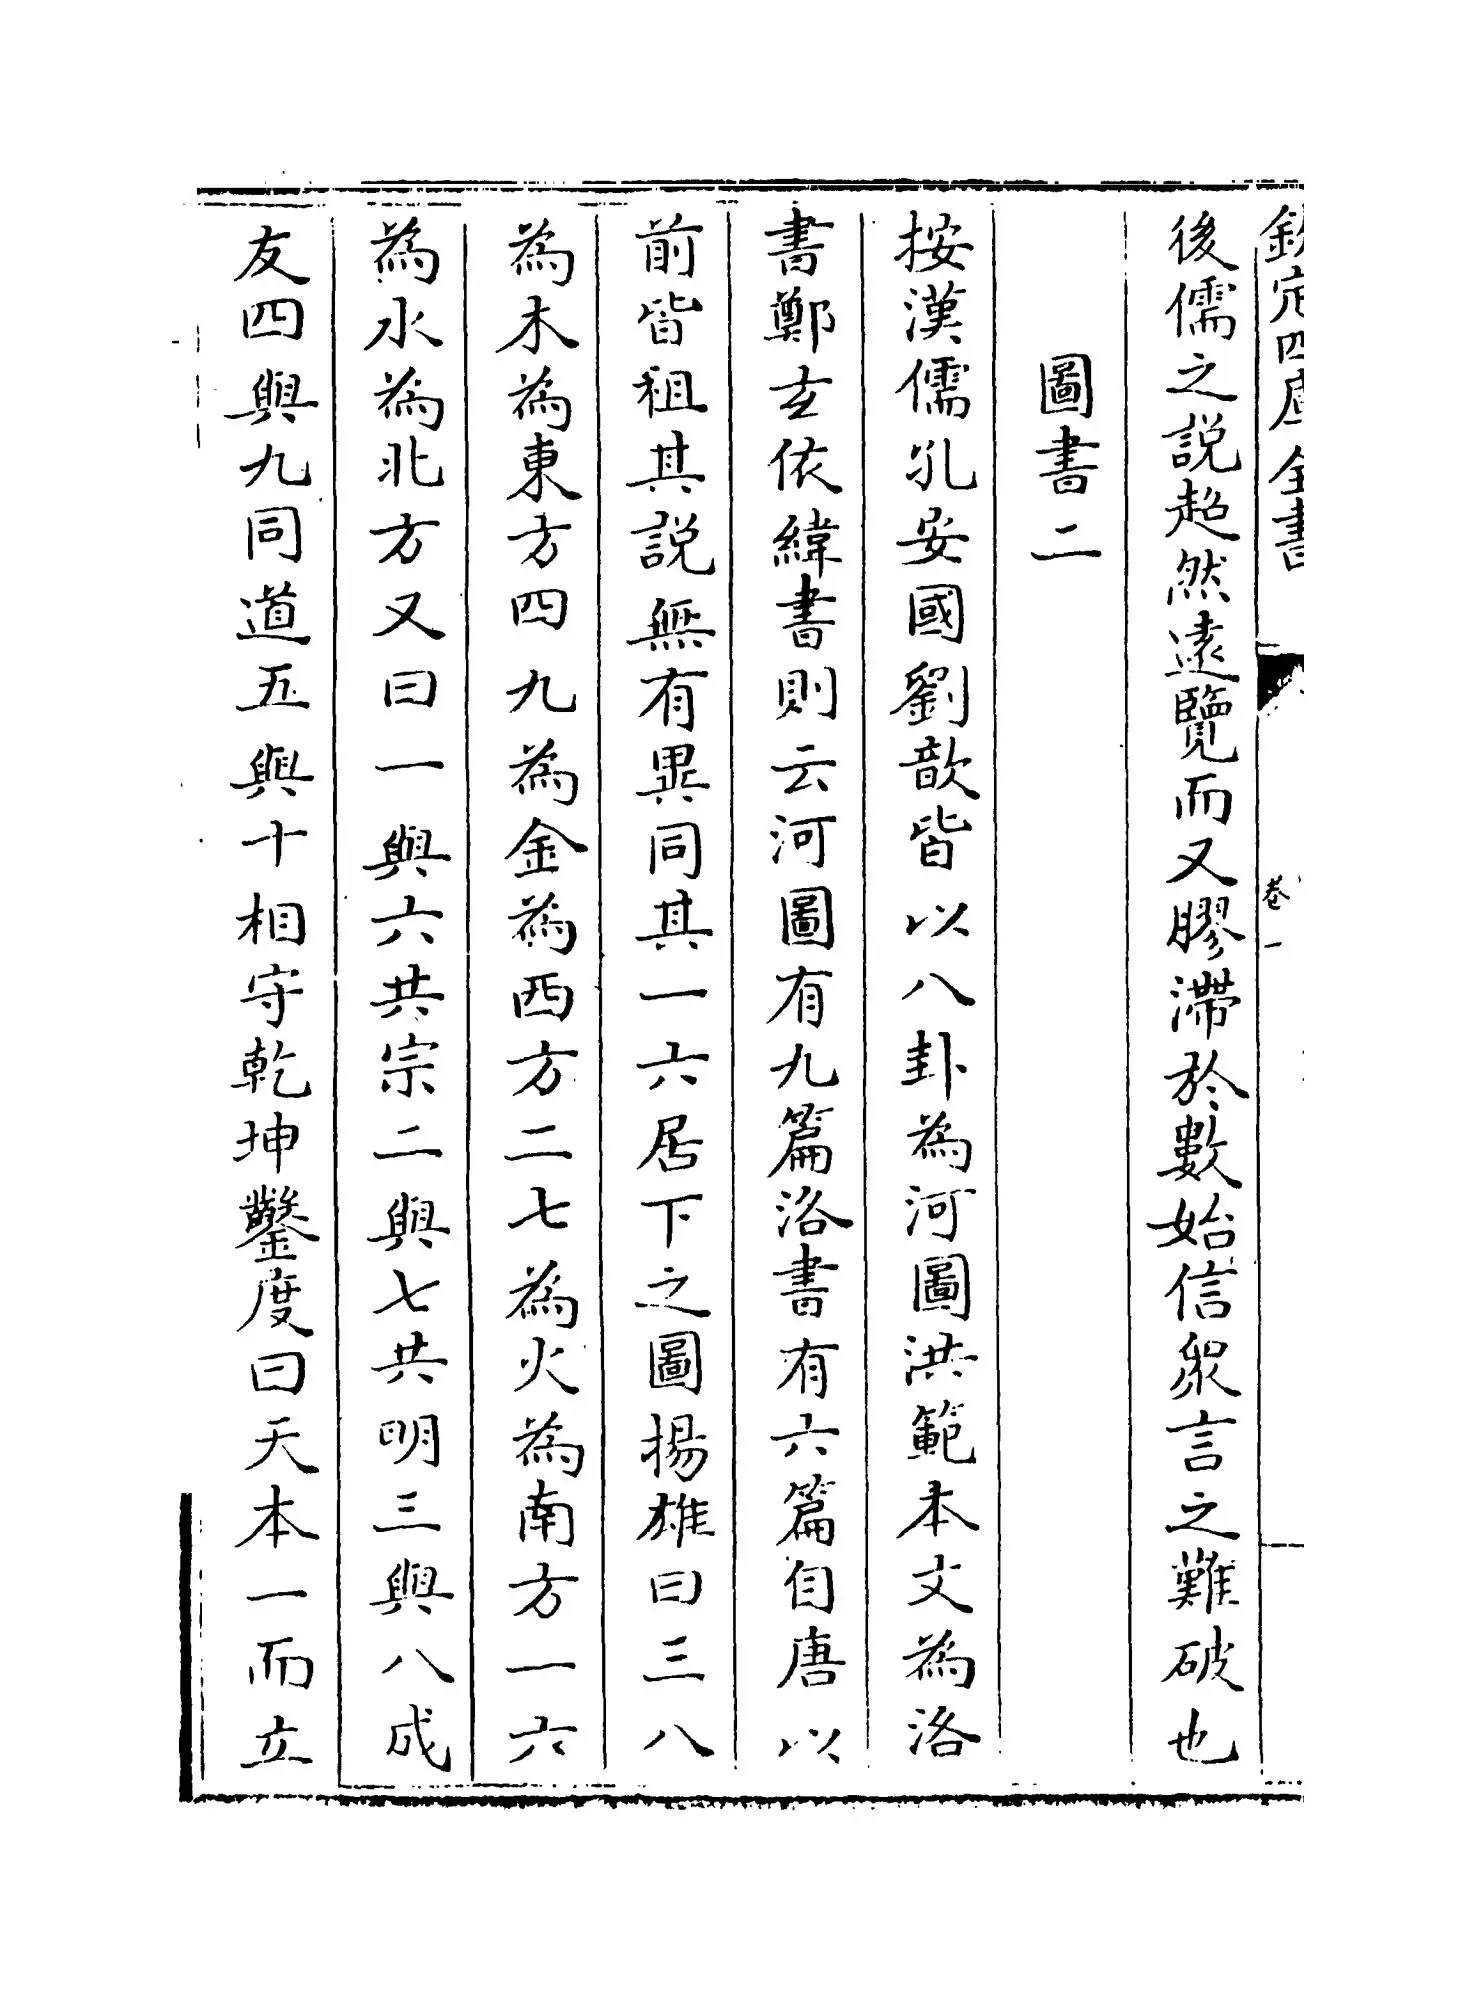 欽定四庫全書
卷一
後儒之説超然逺覽而又膠滯於數始信衆言之難破也
圖書二
按漢儒孔安國劉歆皆以八卦為河圖洪範本文為洛
書鄭玄依緯書則云河圖有九篇洛書有六篇自唐以
前皆祖其説無有異同其一六居下之圖揚雄曰三八
為木為東方四九為金為西方二七為火為南方一六
為水為北方又曰一與六共宗二與七共明三與八成
友四與九同道五與十相守乾坤鑿度曰天本一而立